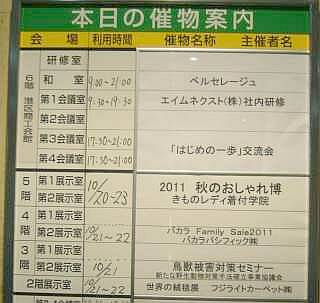 本日の催物案内
会 場 利用時間 催物名称 主催者名
6階 港区商工会館
研修室
和 室 9:00~21:00 ベルセレージュ
第1会議室 9:30~19:30 エイムネクスト(株)社内研修
第2会議室
第3会議室 17:30~21:00 「はじめの一歩」交流会
第4会議室 17:30~21:00
5階 第1展示室 10/20~23 2011 秋のおしゃれ博
第2展示室 きものレディ着付学院
4階 第1展示室 10/21~22 バカラ Family Sale2011
第2展示室 バカラパシフィック㈱
3階 第1展示室 10/21 鳥獣被害対策セミナー
第2展示室 新たな野生動物対策手法確立事業協議会
2階展示室 10/21~22 世界の絨毯展 フジライトカーペット㈱